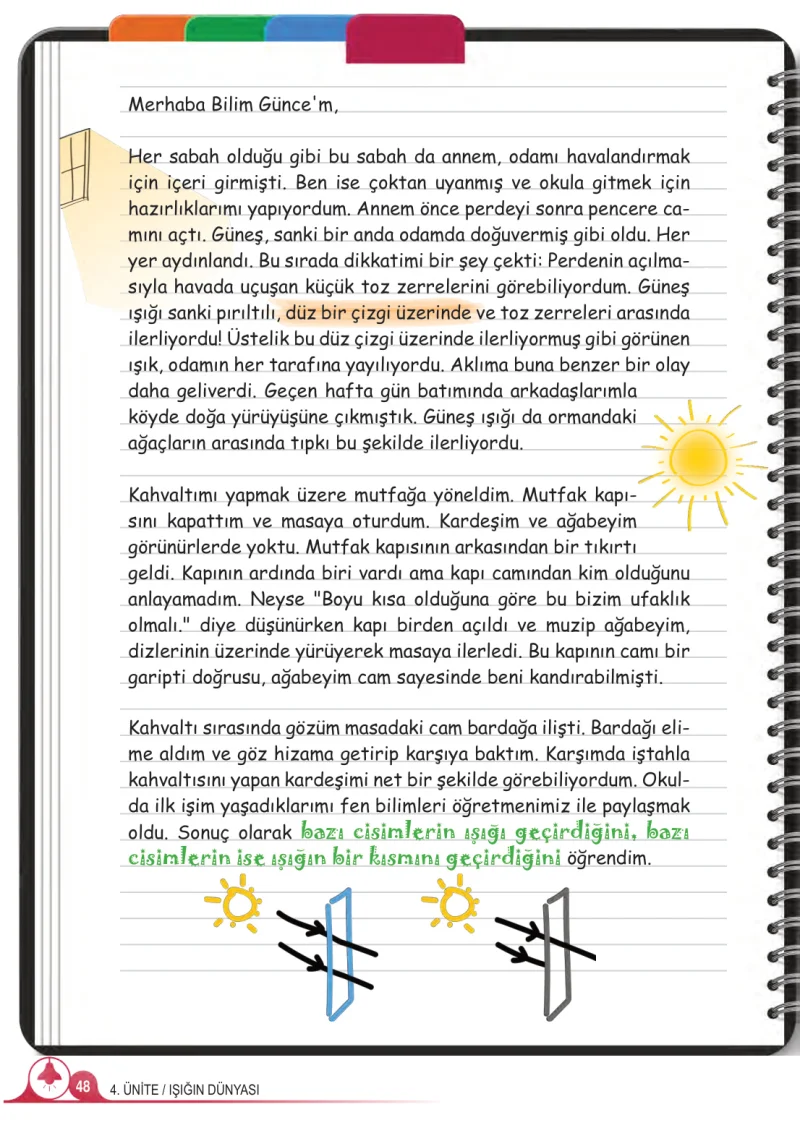 Merhaba Bilim Günce'm,
Her sabah olduğu gibi bu sabah da annem, odamı havalandırmak
için içeri girmişti. Ben ise çoktan uyanmış ve okula gitmek için
hazırlıklarımı yapıyordum. Annem önce perdeyi sonra pencere ca-
mını açtı. Güneş, sanki bir anda odamda doğuvermiş gibi oldu. Her
yer aydınlandı. Bu sırada dikkatimi bir şey çekti: Perdenin açılma-
sıyla havada uçuşan küçük toz zerrelerini görebiliyordum. Güneş
ışığı sanki pırıltılı, düz bir çizgi üzerinde ve toz zerreleri arasında
ilerliyordu! Üstelik bu düz çizgi üzerinde ilerliyormuş gibi görünen
ışık, odamın her tarafına yayılıyordu. Aklıma buna benzer bir olay
daha geliverdi. Geçen hafta gün batımında arkadaşlarımla
köyde doğa yürüyüşüne çıkmıştık. Güneş ışığı da ormandaki
ağaçların arasında tıpkı bu şekilde ilerliyordu.
Kahvaltımı yapmak üzere mutfağa yöneldim. Mutfak kapı-
sını kapattım ve masaya oturdum. Kardeşim ve ağabeyim
görünürlerde yoktu. Mutfak kapısının arkasından bir tıkırtı
geldi. Kapının ardında biri vardı ama kapı camından kim olduğunu
anlayamadım. Neyse "Boyu kısa olduğuna göre bu bizim ufaklık
olmalı." diye düşünürken kapı birden açıldı ve muzip ağabeyim,
dizlerinin üzerinde yürüyerek masaya ilerledi. Bu kapının camı bir
garipti doğrusu, ağabeyim cam sayesinde beni kandırabilmişti.
Kahvaltı sırasında gözüm masadaki cam bardağa ilişti. Bardağı eli-
me aldım ve göz hizama getirip karşıya baktım. Karşımda iştahla
kahvaltısını yapan kardeşimi net bir şekilde görebiliyordum. Okul-
da ilk işim yaşadıklarımı fen bilimleri öğretmenimiz ile paylaşmak
oldu. Sonuç olarak bazı cisimlerin ışığı geçirdiğini, bazı
cisimlerin ise ışığın bir kısmını geçirdiğini öğrendim.
48 4. ÜNİTE / IŞIĞIN DÜNYASI